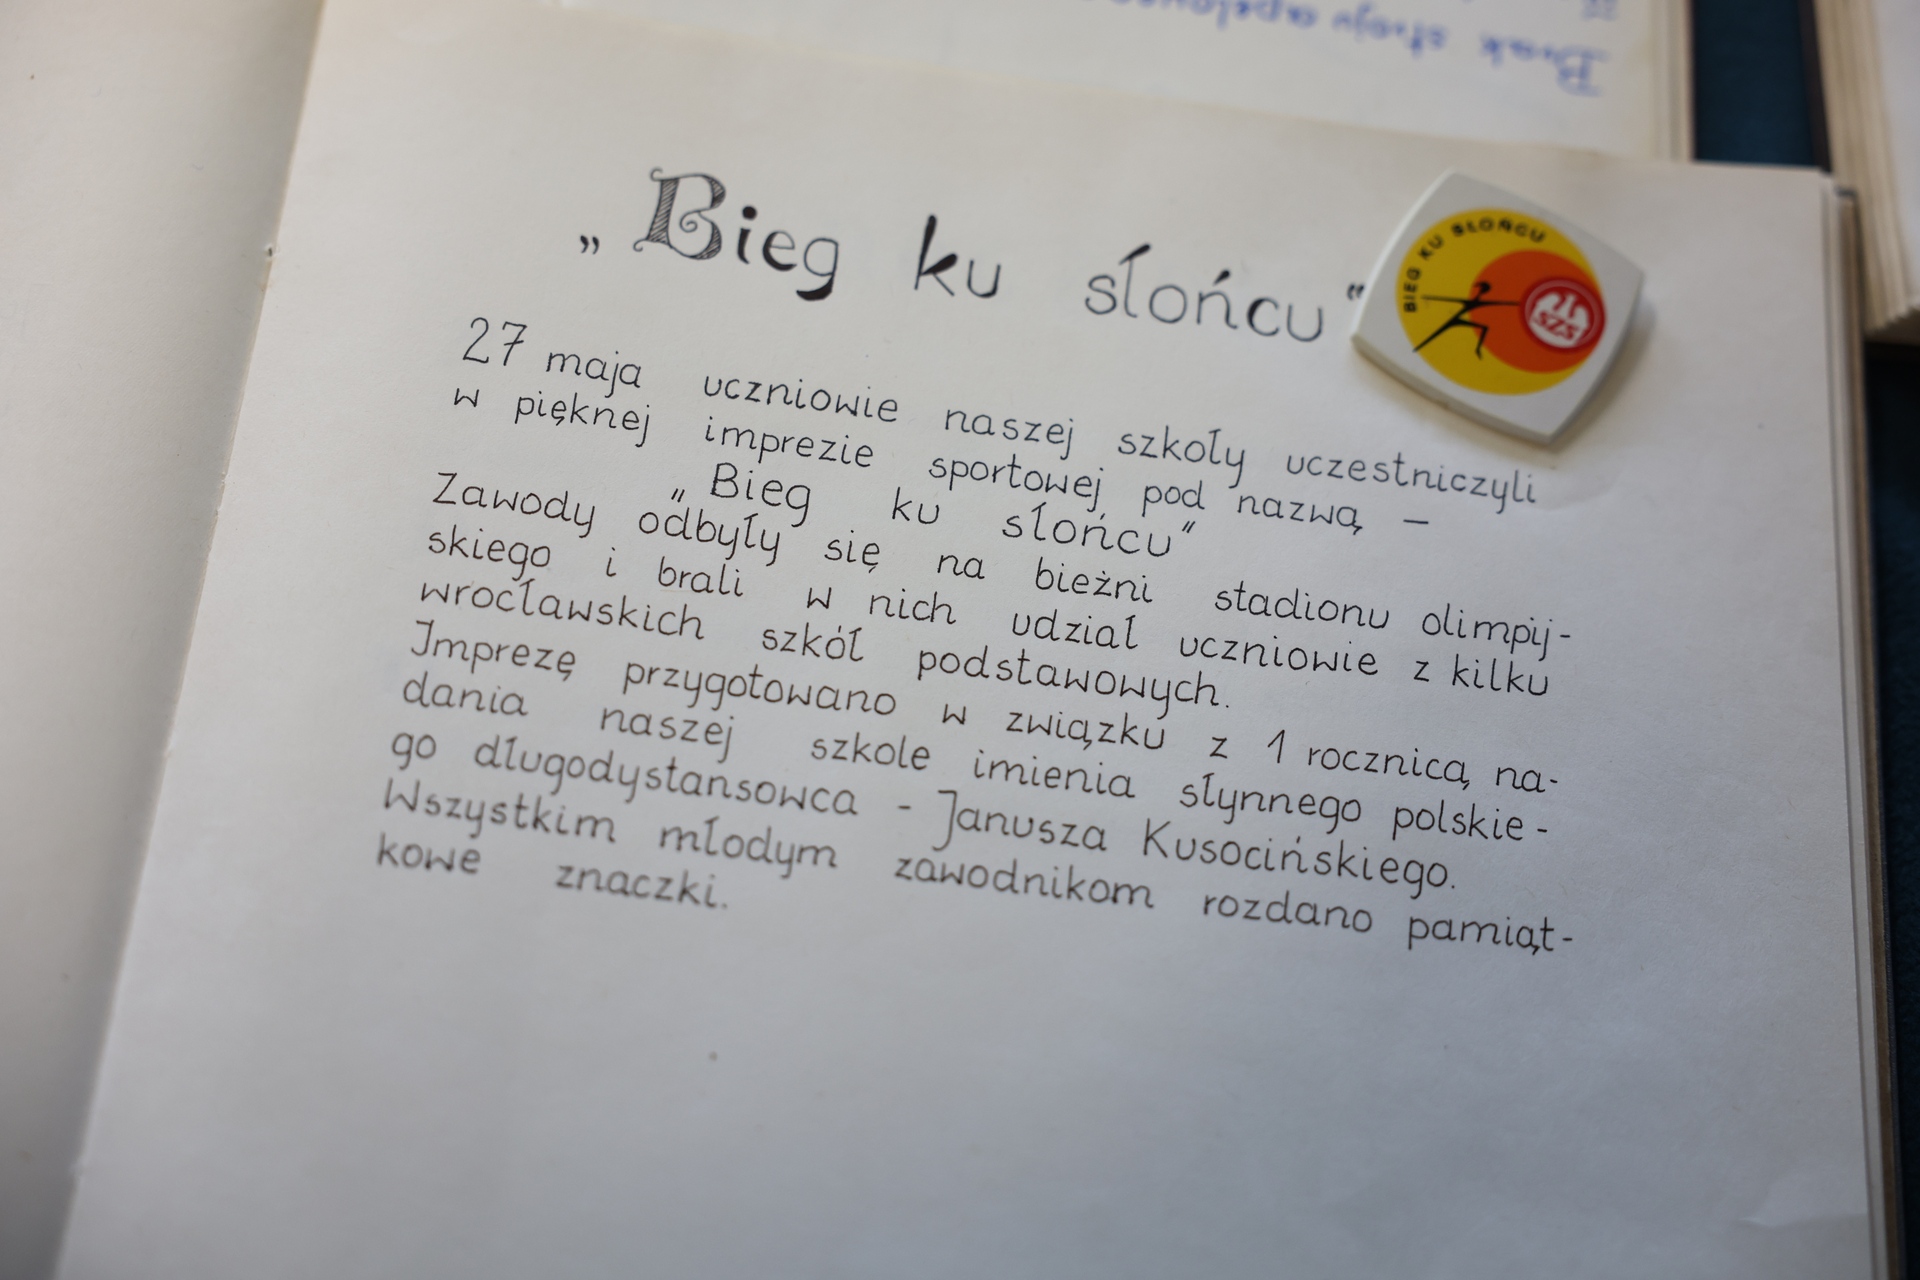 Brak stroju
„Bieg ku słońcu”
BIEG KU SŁOŃCU
SZS
27 maja uczniowie naszej szkoły uczestniczyli
w pięknej imprezie sportowej pod nazwą –
„Bieg ku słońcu”
Zawody odbyły się na bieżni stadionu olimpij-
skiego i brali w nich udział uczniowie z kilku
wrocławskich szkół podstawowych.
Imprezę przygotowano w związku z 1 rocznicą na-
dania naszej szkole imienia słynnego polskie-
go długodystansowca - Janusza Kusocińskiego.
Wszystkim młodym zawodnikom rozdano pamiąt-
kowe znaczki.